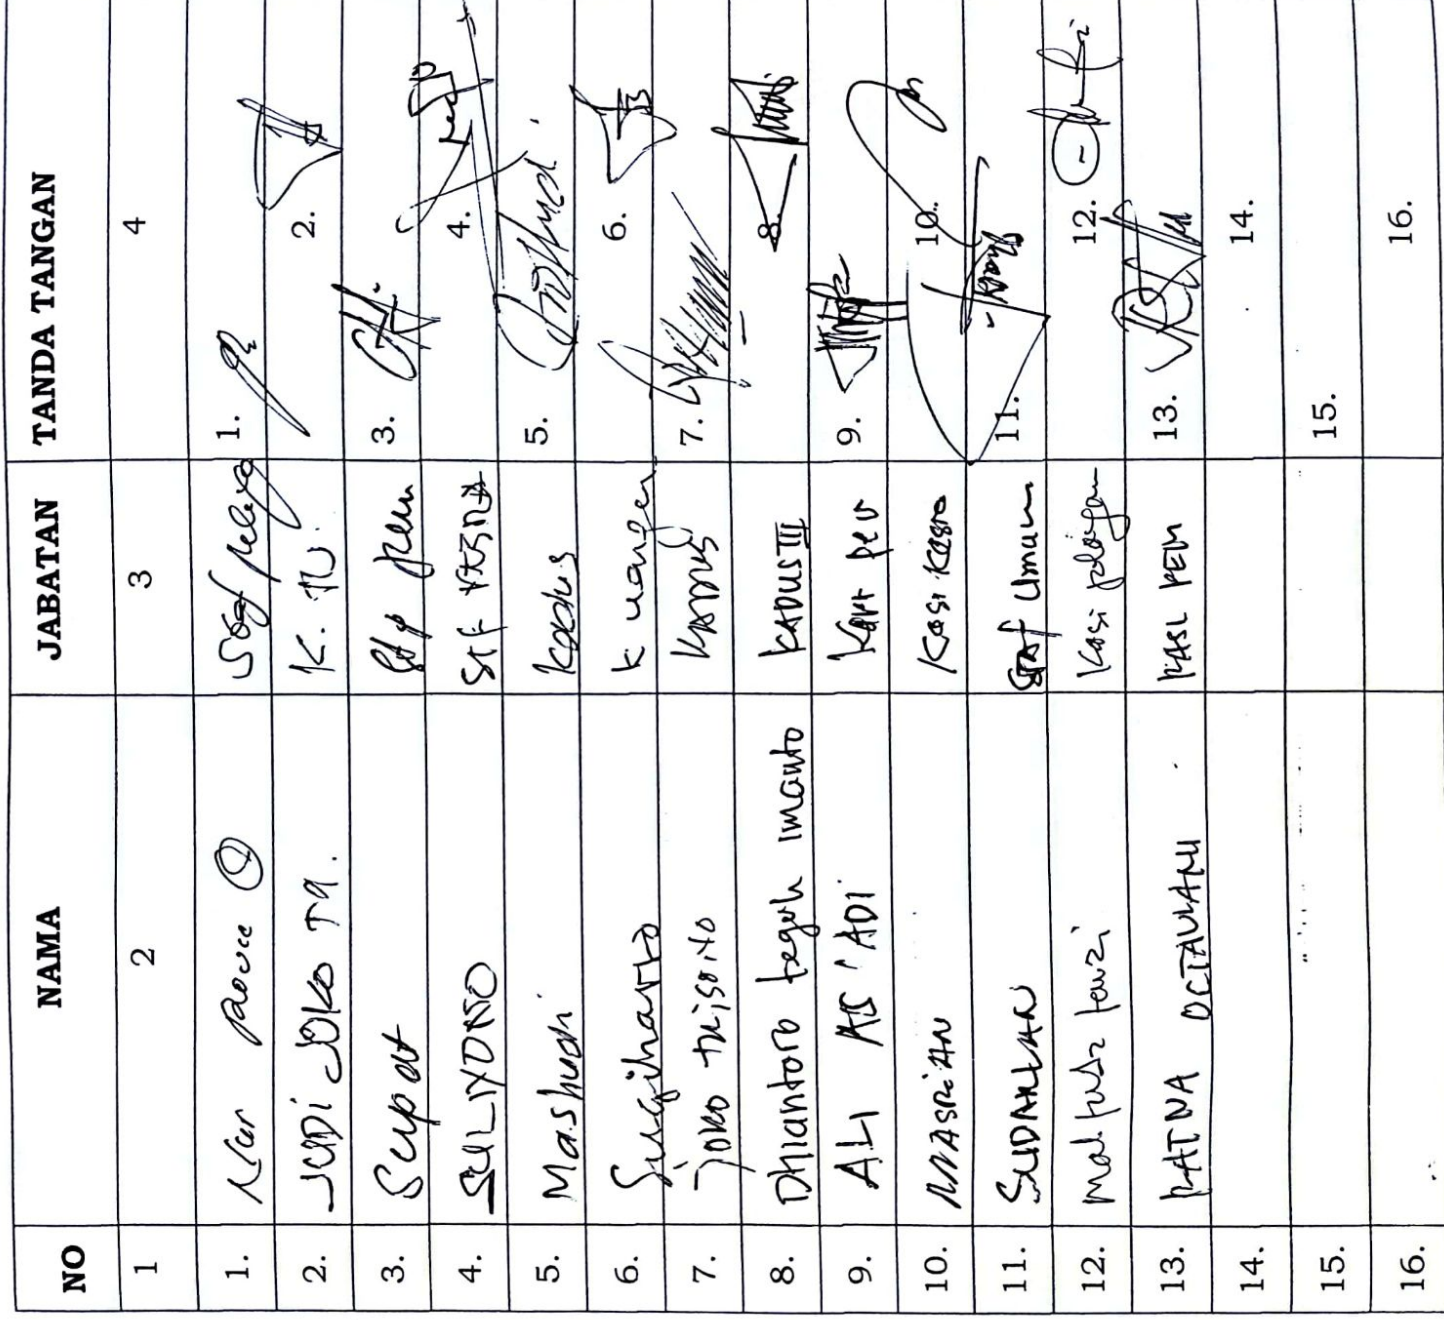 NO NAMA JABATAN TANDA TANGAN
1 2 3 4
1. Nur 1.
2. JUDI JOKO T9. K. TU. 2.
3. Supat Stf pem 3.
4. SULIYONO Stf 4.
5. Mashudi Kadus 5.
6. Sugiharto K uangan 6.
7. Joko trisono KADUS 7.
8. Dhiantoro teguh imanto KADUS III 8.
9. ALI AS'ADI Kaur 9.
10. MASRIAN Kasi Kesra 10.
11. SUDAHLAN Staf Umum 11.
12. Kasi 12.
13. RATNA OCTAVIANI KASI PEM 13.
14. 14.
15. 15.
16. 16.